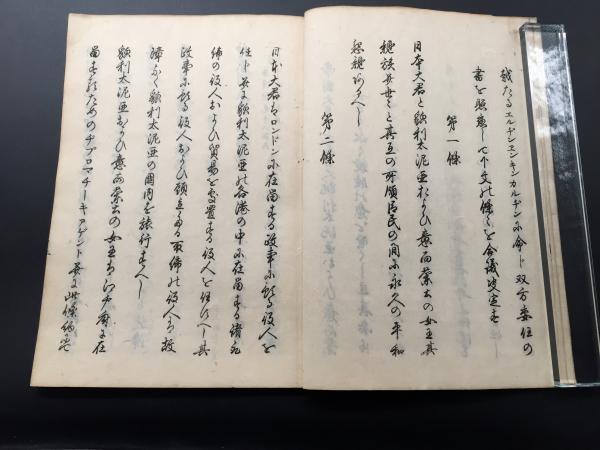 爵たるエルヂンエンキンカルヂンに命し双方委任の
書を照應して下文の條々を合議決定す
第一條
日本大君と貌利太泥亜およひ意而蘭土の女王其
親族并世々と其互の所領居民の間に永久の平和
懇親あるへし
第二條
日本大君はロンドンに在留する政事に預る役人を
任し并に貌利太泥亜の各港の中に在留する諸取
締の役人およひ貿易を處置する役人を任すへし其
政事に預る役人およひ頭立たる取締の役人は故
障なく貌利太泥亜の国内を旅行すへし
貌利太泥亜およひ意而蘭土の女王は江戸府に在
留するためのヂプロマチーキアゲント并に此條約